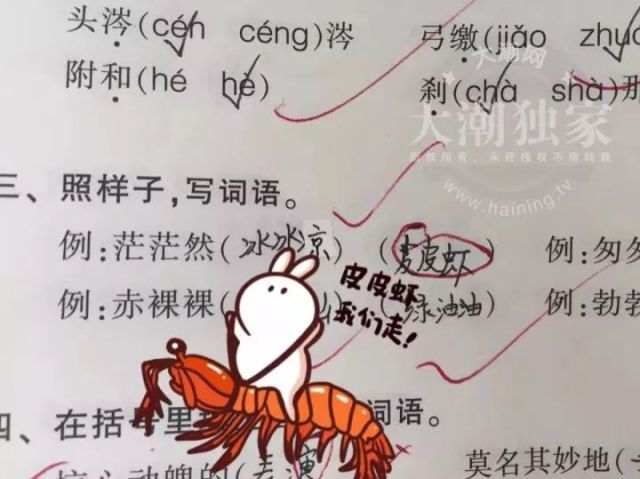 头涔(cén céng)涔 弓缴(jiǎo zhuó
附和(hé hè) 刹(chà shà)那
大潮网
大潮独家
版权所有,未经授权不得转载
www.haining.tv
三、照样子,写词语。
例:茫茫然(冰冰凉) (皮皮虾) 例:匆匆
例:赤裸裸( (绿油油) 例:勃勃
皮皮虾
我们走!
四、在括号里 词语。
惊心动魄的(表演 莫名其妙地(